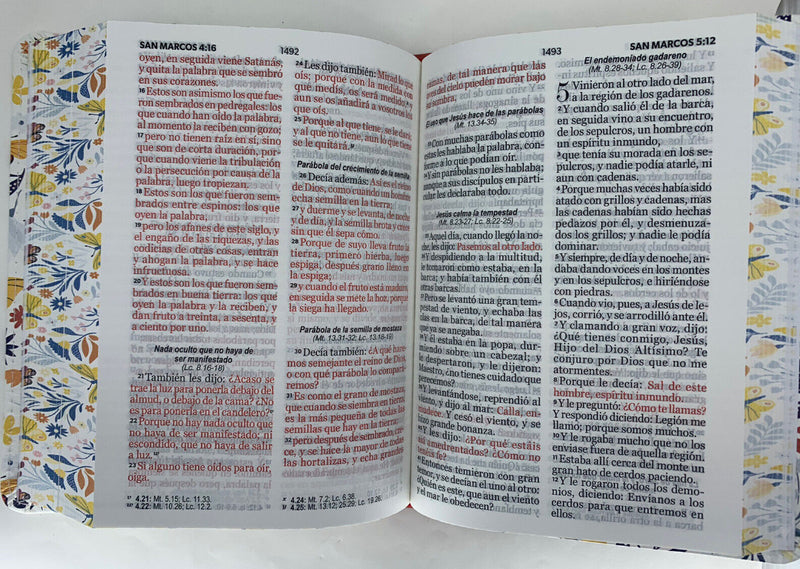 SAN MARCOS 4:16
1492
oyen, en seguida viene Satanás,
y quita la palabra que se sembró
en sus corazones.
16 Estos son asimismo los que fueron
sembrados en pedregales: los
que cuando han oído la palabra,
al momento la reciben con gozo;
17 pero no tienen raíz en sí, sino
que son de corta duración, porque
cuando viene la tribulación
o la persecución por causa de la
palabra, luego tropiezan.
18 Estos son los que fueron sembrados
entre espinos: los que
oyen la palabra,
19 pero los afanes de este siglo, y
el engaño de las riquezas, y las
codicias de otras cosas, entran
y ahogan la palabra, y se hace
infructuosa.
20 Y estos son los que fueron sembrados
en buena tierra: los que
oyen la palabra y la reciben, y
dan fruto a treinta, a sesenta, y
a ciento por uno.
Nada oculto que no haya de
ser manifestado
(Lc. 8.16-18)
21 También les dijo: ¿Acaso se
trae la luz para ponerla debajo del
almud, o debajo de la cama? ¿No
es para ponerla en el candelero?
22 Porque no hay nada oculto que
no haya de ser manifestado; ni
escondido, que no haya de salir
a luz.
23 Si alguno tiene oídos para oír,
oiga.
4.21: Mt. 5.15; Lc. 11.33.
4.22: Mt. 10.26; Lc. 12.2.
24 Les dijo también: Mirad lo que
oís; porque con la medida con
que medís, os será medido, y
aun se os añadirá a vosotros los
que oís.
25 Porque al que tiene, se le dará;
y al que no tiene, aun lo que tiene
se le quitará.
Parábola del crecimiento de la semilla
26 Decía además: Así es el reino
de Dios, como cuando un hombre
echa semilla en la tierra;
27 y duerme y se levanta, de noche
y de día, y la semilla brota y crece
sin que él sepa cómo.
28 Porque de suyo lleva fruto la
tierra, primero hierba, luego
espiga, después grano lleno en
la espiga;
29 y cuando el fruto está maduro,
en seguida se mete la hoz, porque
la siega ha llegado.
Parábola de la semilla de mostaza
(Mt. 13.31-32; Lc. 13.18-19)
30 Decía también: ¿A qué haremos
semejante el reino de Dios,
o con qué parábola lo compararemos?
31 Es como el grano de mostaza,
que cuando se siembra en tierra,
es la más pequeña de todas las
semillas que hay en la tierra;
32 pero después de sembrado, crece,
y se hace la mayor de todas
las hortalizas, y echa grandes
4.24: Mt. 7.2; Lc. 6.38.
4.25: Mt. 13.12; 25.29; Lc. 19.26.
1493
SAN MARCOS 5:12
ramas, de tal manera que las
aves del cielo pueden morar bajo
su sombra.
El uso que Jesús hace de las parábolas
(Mt. 13.34-35)
33 Con muchas parábolas como
estas les hablaba la palabra, conforme
a lo que podían oír.
34 Y sin parábolas no les hablaba;
aunque a sus discípulos en particular
les declaraba todo.
Jesús calma la tempestad
(Mt. 8.23-27; Lc. 8.22-25)
35 Aquel día, cuando llegó la noche,
les dijo: Pasemos al otro lado.
36 Y despidiendo a la multitud,
le tomaron como estaba, en la
barca; y había también con él
otras barcas.
37 Pero se levantó una gran tempestad
de viento, y echaba las
olas en la barca, de tal manera
que ya se anegaba.
38 Y él estaba en la popa, durmiendo
sobre un cabezal; y
le despertaron, y le dijeron:
Maestro, ¿no tienes cuidado que
perecemos?
39 Y levantándose, reprendió al
viento, y dijo al mar: Calla, enmudece.
Y cesó el viento, y se
hizo grande bonanza.
40 Y les dijo: ¿Por qué estáis
así amedrentados? ¿Cómo no
tenéis fe?
41 Entonces temieron con gran
temor, y se decían el uno al otro:
¿Quién es este, que aun el viento
y el mar le obedecen?
El endemoniado gadareno
(Mt. 8.28-34; Lc. 8.26-39)
5 Vinieron al otro lado del mar,
a la región de los gadarenos.
2 Y cuando salió él de la barca,
en seguida vino a su encuentro,
de los sepulcros, un hombre con
un espíritu inmundo,
3 que tenía su morada en los sepulcros,
y nadie podía atarle, ni
aun con cadenas.
4 Porque muchas veces había sido
atado con grillos y cadenas, mas
las cadenas habían sido hechas
pedazos por él, y desmenuzados
los grillos; y nadie le podía
dominar.
5 Y siempre, de día y de noche, andaba
dando voces en los montes
y en los sepulcros, e hiriéndose
con piedras.
6 Cuando vio, pues, a Jesús de lejos,
corrió, y se arrodilló ante él.
7 Y clamando a gran voz, dijo:
¿Qué tienes conmigo, Jesús,
Hijo del Dios Altísimo? Te
conjuro por Dios que no me
atormentes.
8 Porque le decía: Sal de este
hombre, espíritu inmundo.
9 Y le preguntó: ¿Cómo te llamas?
Y respondió diciendo: Legión me
llamo; porque somos muchos.
10 Y le rogaba mucho que no los
enviase fuera de aquella región.
11 Estaba allí cerca del monte un
gran hato de cerdos paciendo.
12 Y le rogaron todos los demonios,
diciendo: Envíanos a los
cerdos para que entremos en
ellos.